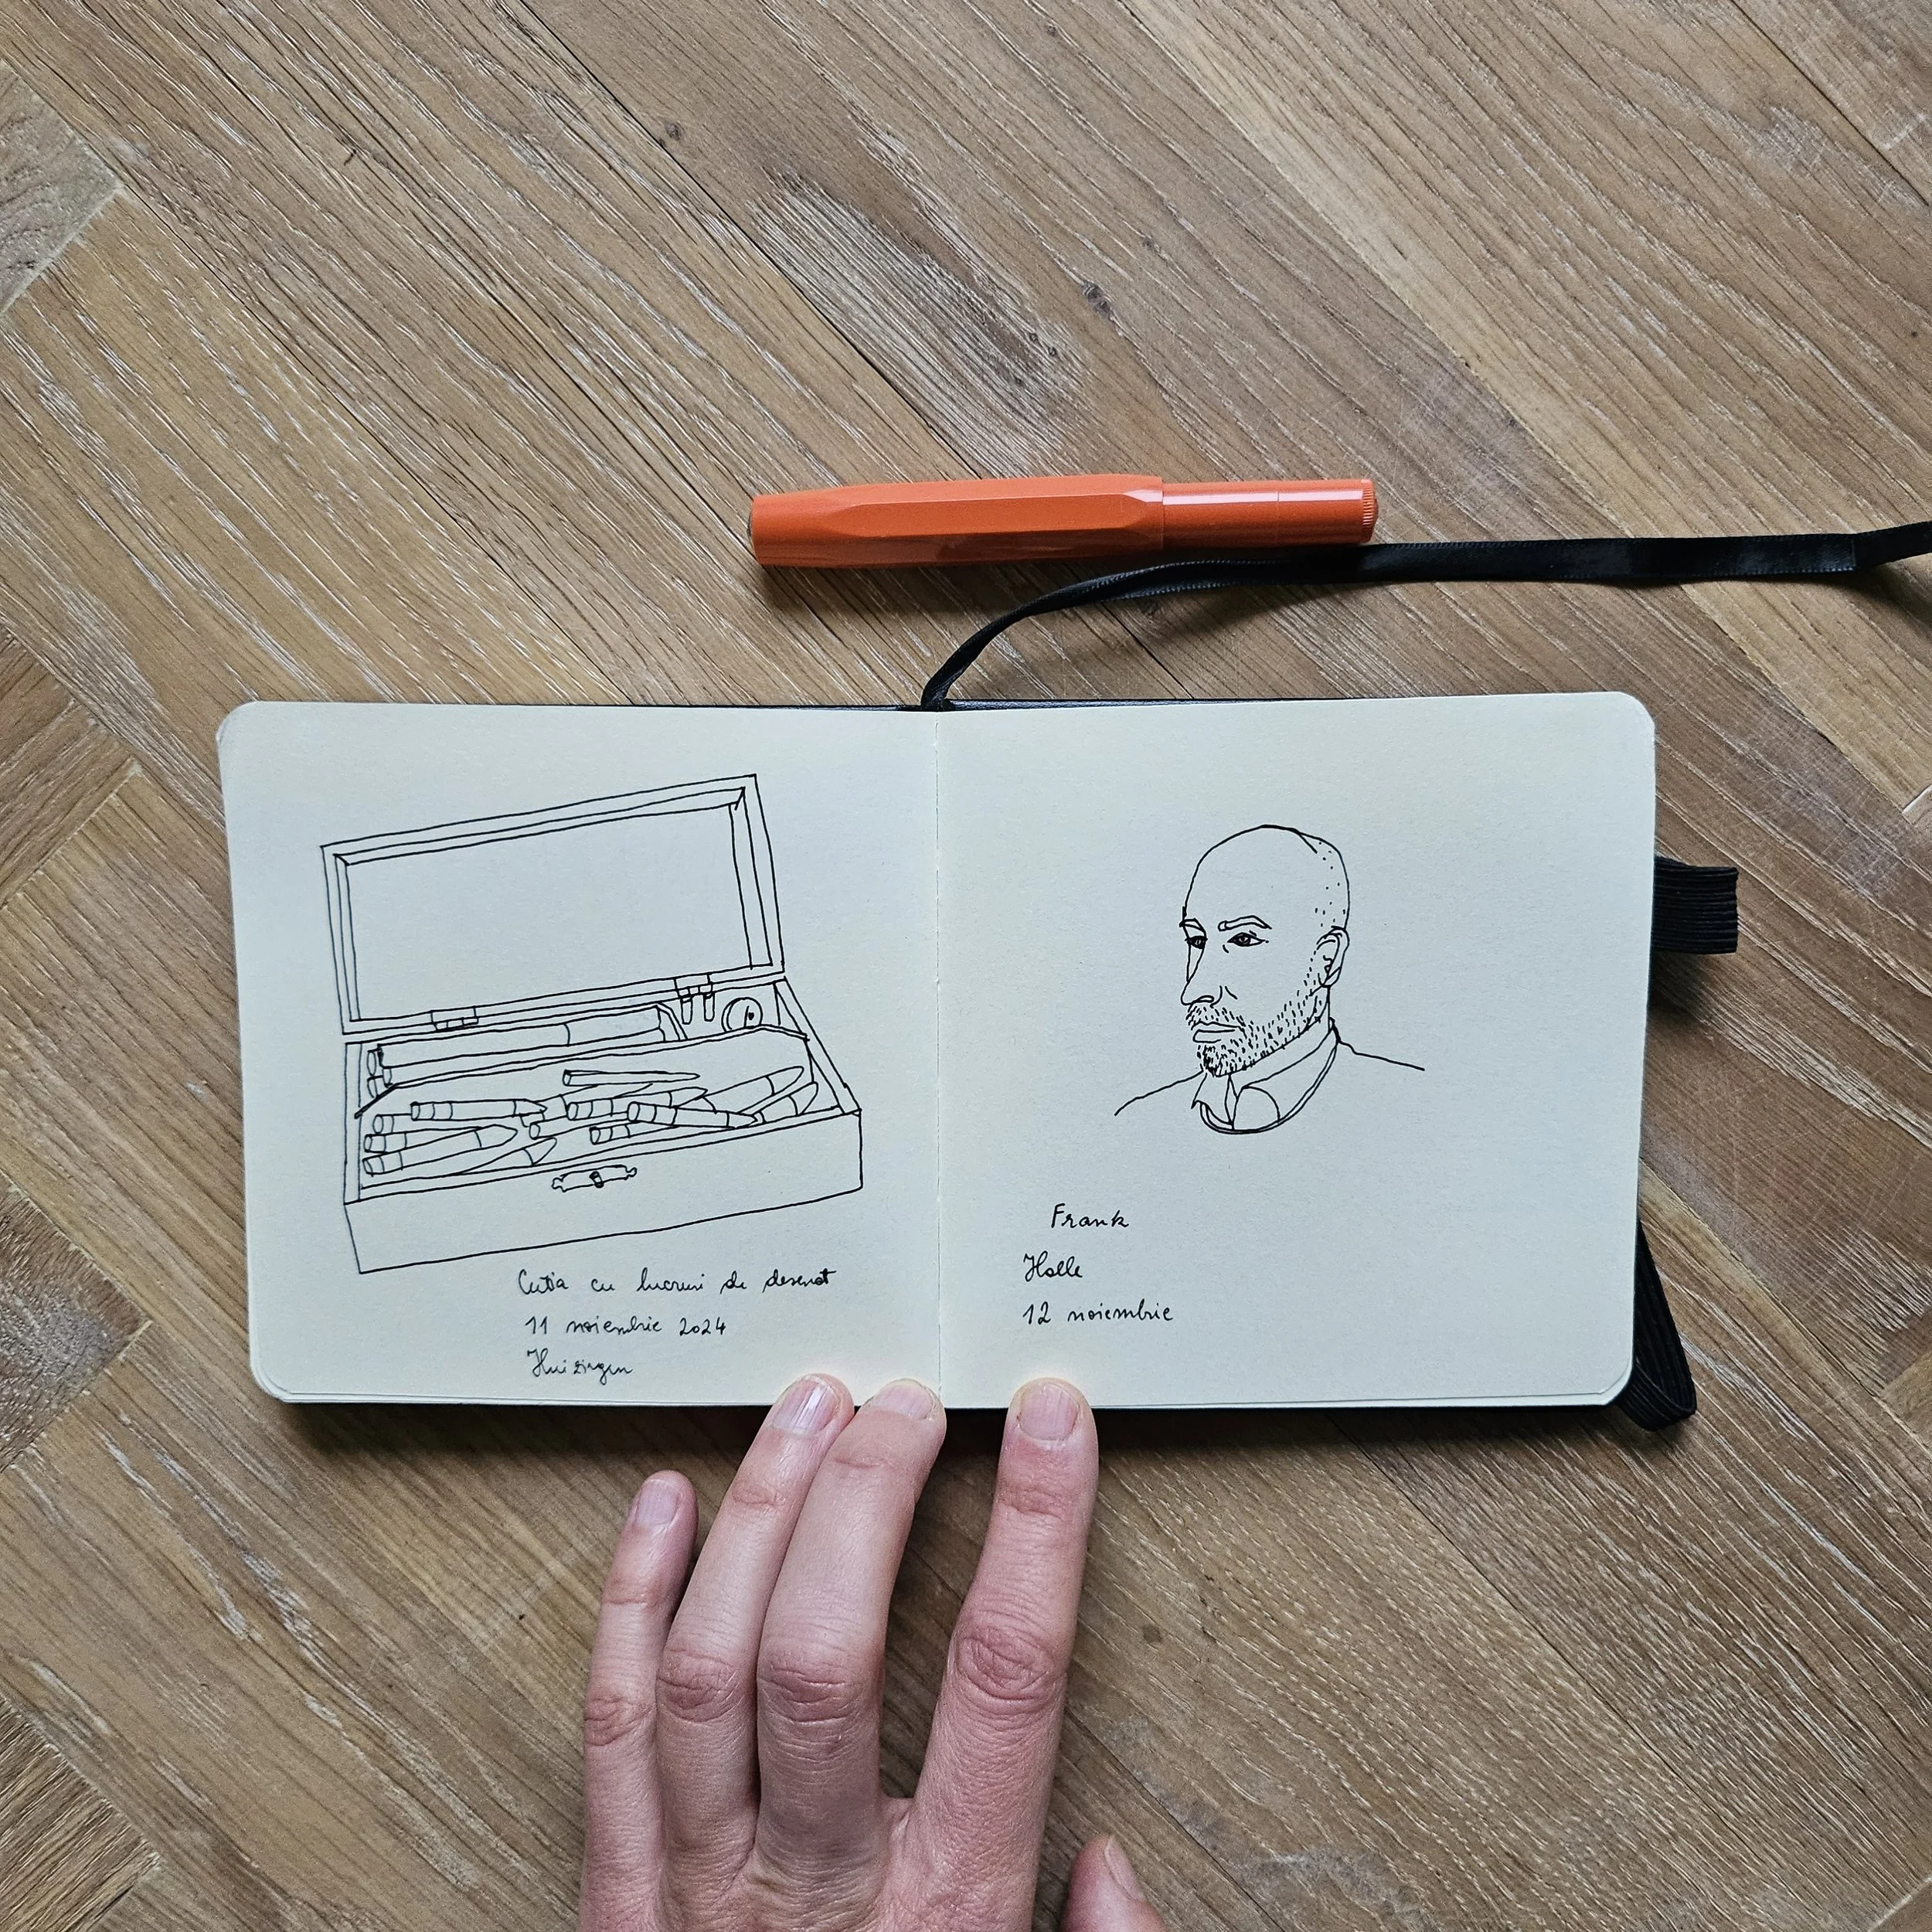 Cutia cu lucruri de desenat
11 noiembrie 2024
Huizingen
Frank
Halle
12 noiembrie